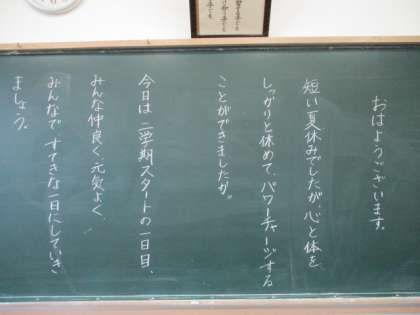 おはようございます。
短い夏休みでしたが、心と体を
しっかりと休めて、パワーチャージする
ことができましたか。
今日は、二学期スタートの一日目、
みんな仲良く、元気よく、
みんなで、すてきな一日にしていき
ましょう。